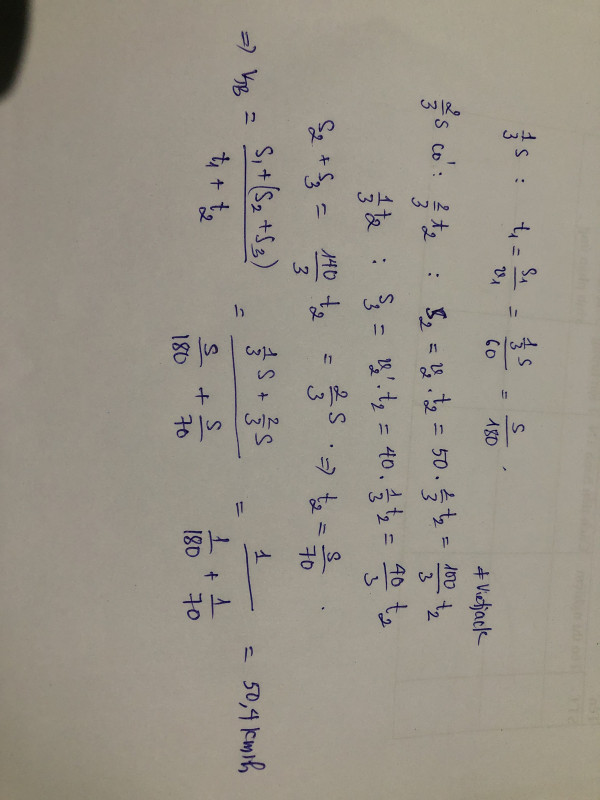 1/3 S : t₁ = S₁/v₁ = (1/3 S)/60 = S/180 .
# Vietjack
2/3 S có : 2/3 t₂ : S₂ = v₂ . t₂ = 50 . 2/3 t₂ = 100/3 t₂
1/3 t₂ : S₃ = v₂' . t₂ = 40 . 1/3 t₂ = 40/3 t₂
S₂ + S₃ = 140/3 t₂ = 2/3 S . => t₂ = S/70 .
=> V_TB = (S₁ + (S₂ + S₃))/(t₁ + t₂) = (1/3 S + 2/3 S)/(S/180 + S/70) = 1/(1/180 + 1/70) = 50,4 km/h